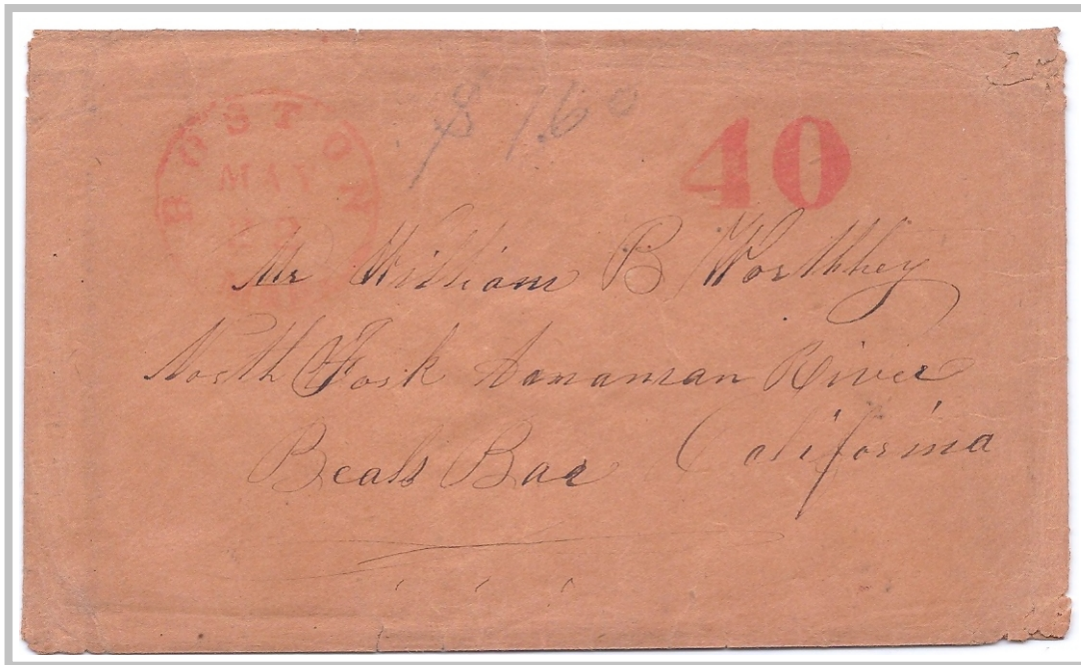 BOSTON
MAY
$ 1.60
40
Mr William B Worthhey
North Fork Amaman River
Beals Bar California